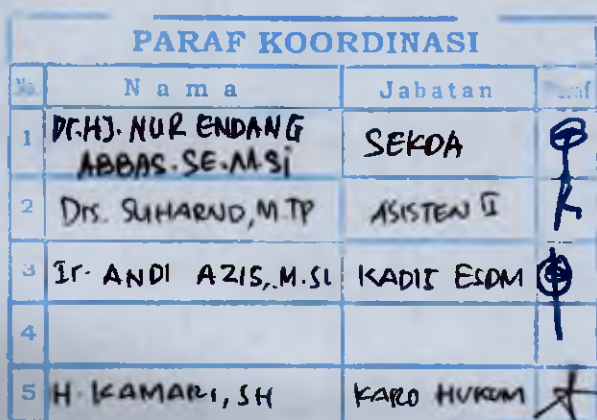 PARAF KOORDINASI
No. Nama Jabatan Paraf
1 Dr. HJ. NUR ENDANG ABBAS. SE. M.Si SEKDA
2 Drs. SUHARNO, M.TP ASISTEN II
3 Ir. ANDI AZIS, M.Si KADIS ESDM
4
5 H. KAMARI, SH KARO HUKUM